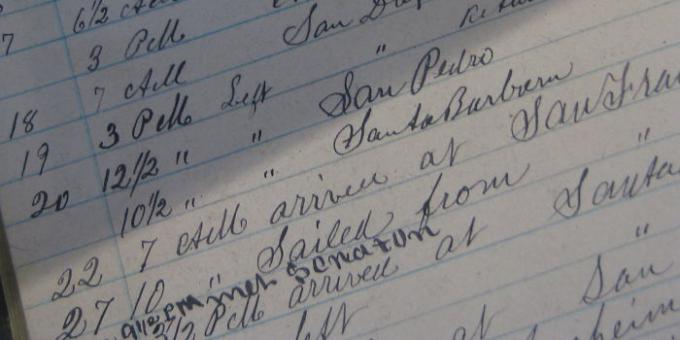 7 6 1/2 AM
3 PM San
18 7 AM "
19 3 PM Left San Pedro
20 12 1/2 " " Santa Barbara
10 1/2 " "
22 7 AM arrived at San Fran
27 10 " Sailed from "
9 1/2 PM met Senator
PM arrived at Santa
left at "
San